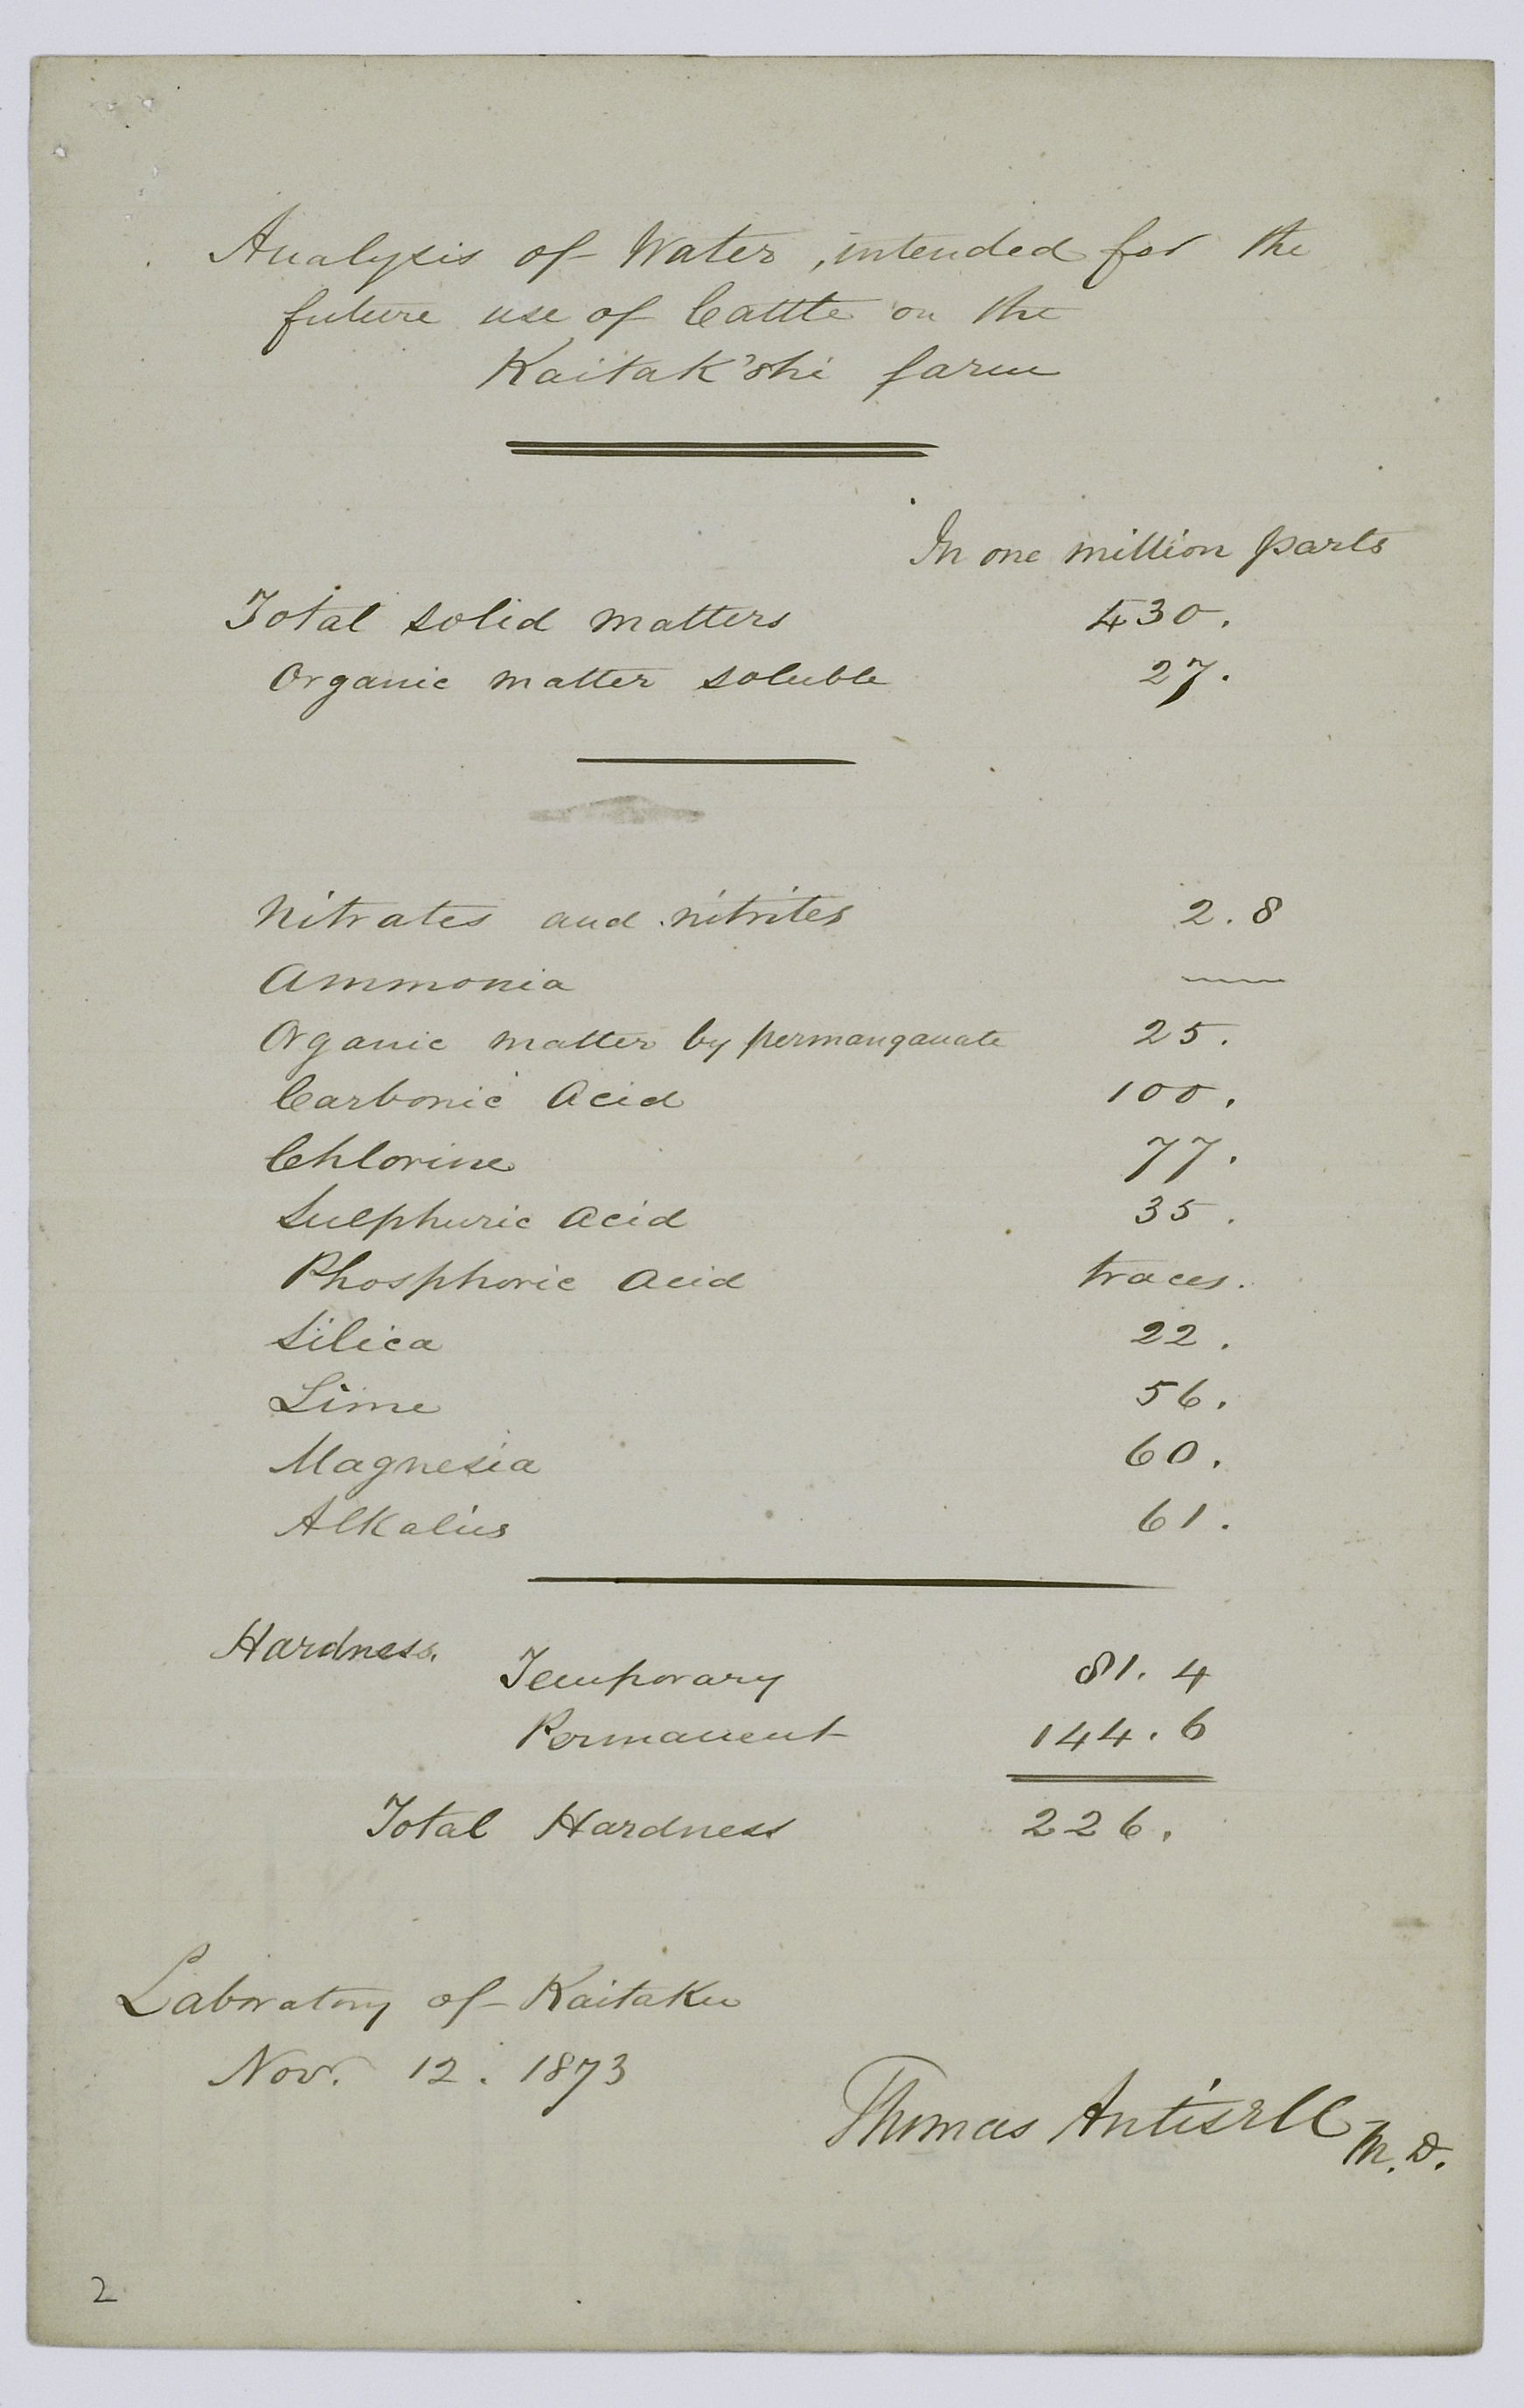 Analysis of Water, intended for the
future use of Cattle on the
Kaitak'shi farm
In one million parts
Total solid matters 430.
Organic matter soluble 27.
Nitrates and nitrites 2.8
Ammonia —
Organic matter by permanganate 25.
Carbonic Acid 100.
Chlorine 77.
Sulphuric Acid 35.
Phosphoric Acid traces.
Silica 22.
Lime 56.
Magnesia 60.
Alkalies 61.
Hardness.
Temporary 81.4
Permanent 144.6
Total Hardness 226.
Laboratory of Kaitaku
Nov. 12. 1873
Thomas Antisell M.D.
2